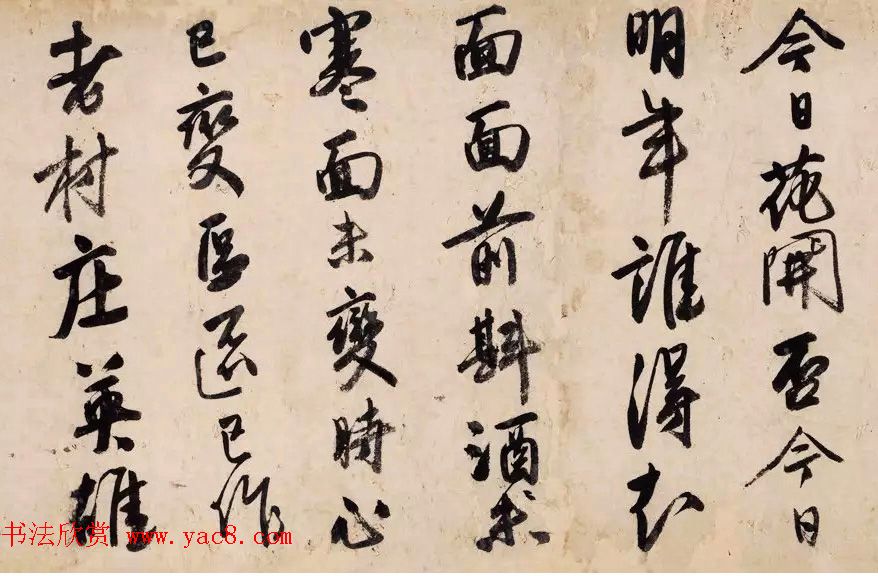 今日花開否今日
明年誰得知
面面前斟酒未
寒面未變時心
已變區已作
老村庄英雄
书法欣赏 www.yac8.com